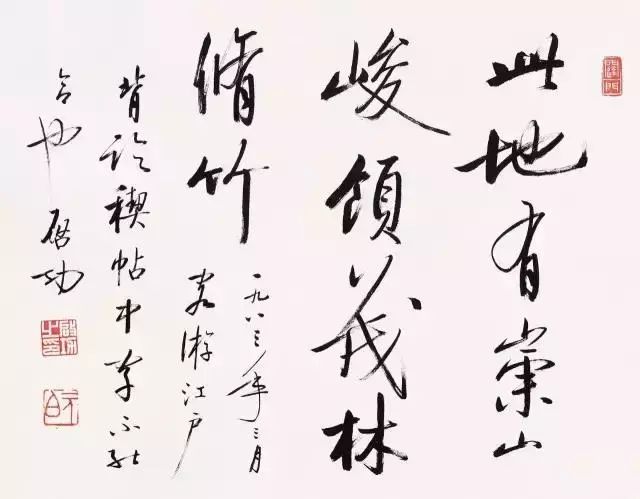 此地有崇山
峻領茂林
脩竹
一九八三年三月
客游江户
背临禊帖中字不能
合也 啓功
元白